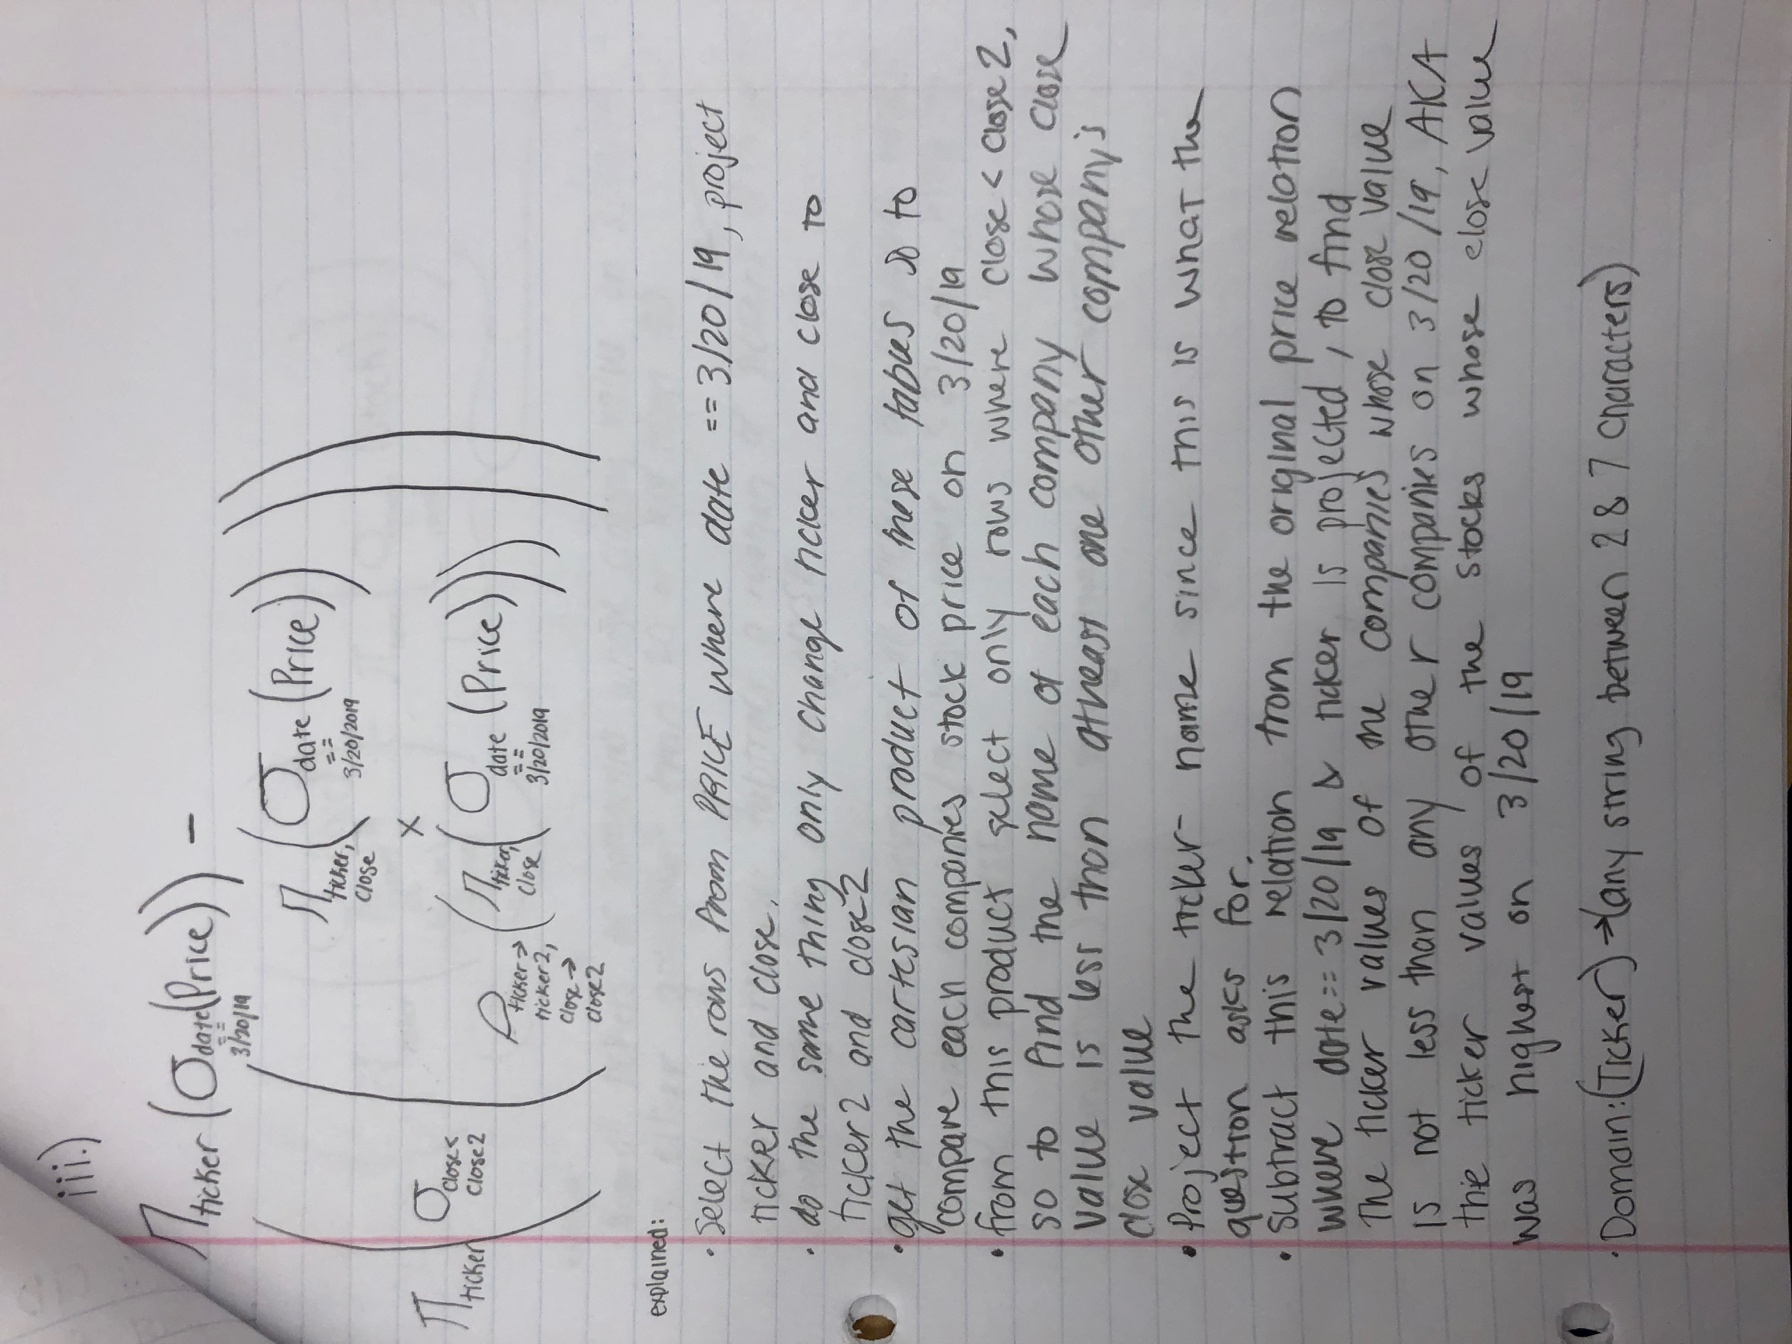 iii.)
Π ticker (σ date == 3/20/19 (Price)) –
Π ticker ( σ close < close2 ( Π ticker, close ( σ date == 3/20/2019 (Price))
×
ρ ticker → ticker2, close → close2 ( Π ticker, close ( σ date == 3/20/2019 (Price))) ))
explained:
• Select the rows from PRICE where date == 3/20/19, project
ticker and close.
• do the same thing only change ticker and close to
ticker2 and close2
• get the cartesian product of these tables so to
compare each companies stock price on 3/20/19
• from this product select only rows where close < close2,
so to find the name of each company whose close
value is less than atleast one other company's
close value
• Project the ticker name since this is what the
question asks for.
• subtract this relation from the original price relation
where date == 3/20/19 & ticker is projected, to find
the ticker values of the companies whose close value
is not less than any other companies on 3/20/19, AKA
the ticker values of the stocks whose close value
was highest on 3/20/19
• Domain: (Ticker) → (any string between 2 & 7 characters)